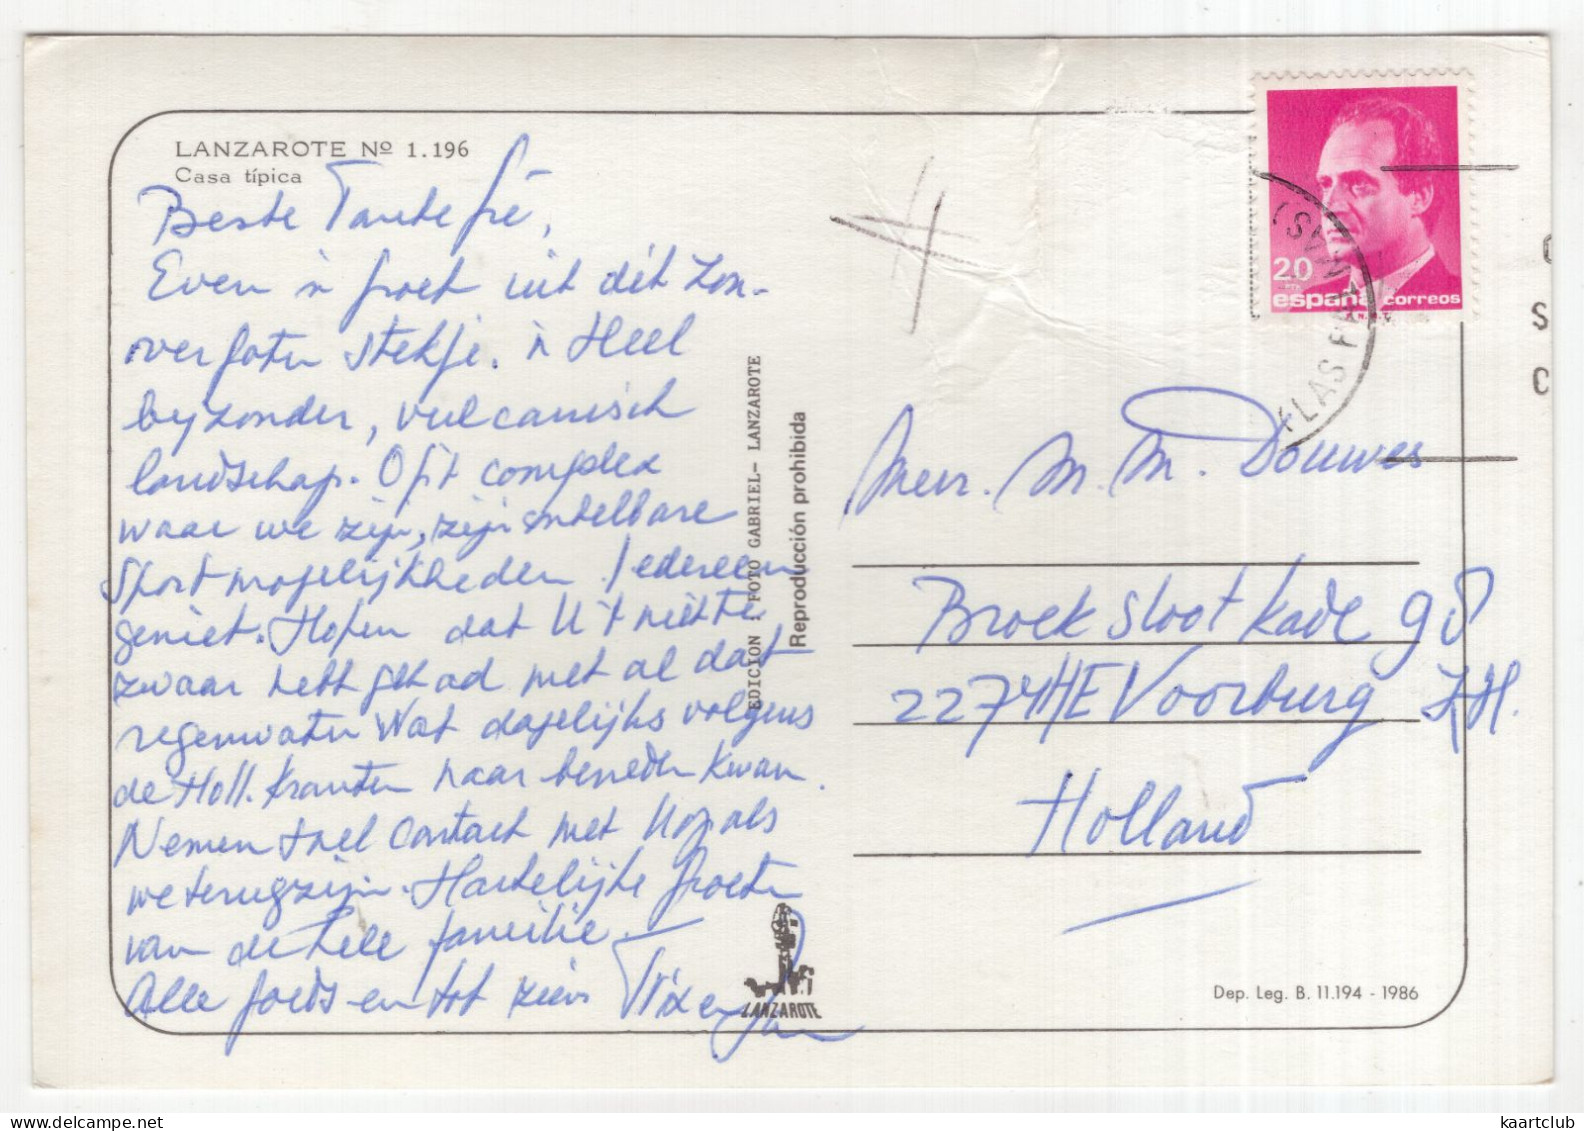 LANZAROTE Nº 1.196
Casa típica
Beste Tante Fré,
Even 'n groet uit dit zon-
overgoten stekje. 'n Heel
byzonder, vulcanisch
landschap. Op 't complex
waar we zijn, zijn ontelbare
sportmogelijkheden. Iedereen
geniet. Hopen dat U 't niet te
zwaar hebt gehad met al dat
regenwater wat dagelijks volgens
de Holl. kranten naar beneden kwam.
Nemen snel contact met U op als
we terug zijn. Hartelijke groeten
van de hele familie.
Alle goeds en tot ziens Trix en
EDICION : FOTO GABRIEL- LANZAROTE
Reproducción prohibida
LANZAROTE
20
PTA
españa correos
(LAS PALMAS)
Mevr. M. M. Douwes
Broekslootkade 98
2274HE Voorburg Z.H.
Holland
Dep. Leg. B. 11.194 - 1986
kaartclub